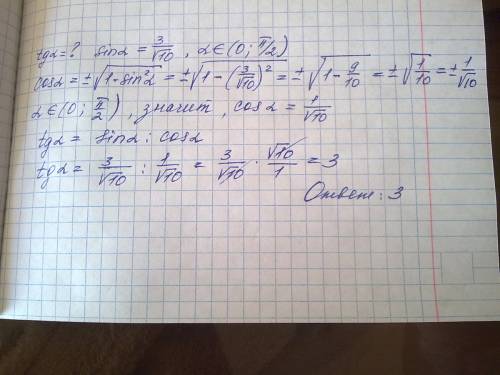 tgα = ? sinα = 3/√10 , α∈(0; π/2)
cosα = ±√(1-sin²α) = ±√(1-(3/√10)²) = ±√(1-9/10) = ±√(1/10) = ±1/√10
α∈(0; π/2), значит, cosα = 1/√10
tgα = sinα : cosα
tgα = 3/√10 : 1/√10 = 3/√10 · √10/1 = 3
Ответ: 3